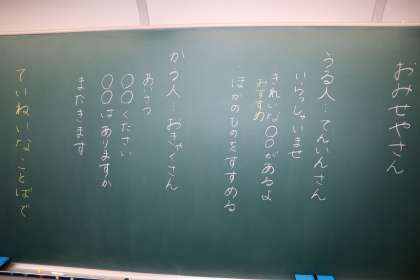 おみせやさん
うる人…てんいんさん
いらっしゃいませ
きれいな〇〇があるよ
おすすめ
ほかのものをすすめる
かう人…おきゃくさん
あいさつ
〇〇ください
〇〇はありますか
またきます
ていねいなことばで